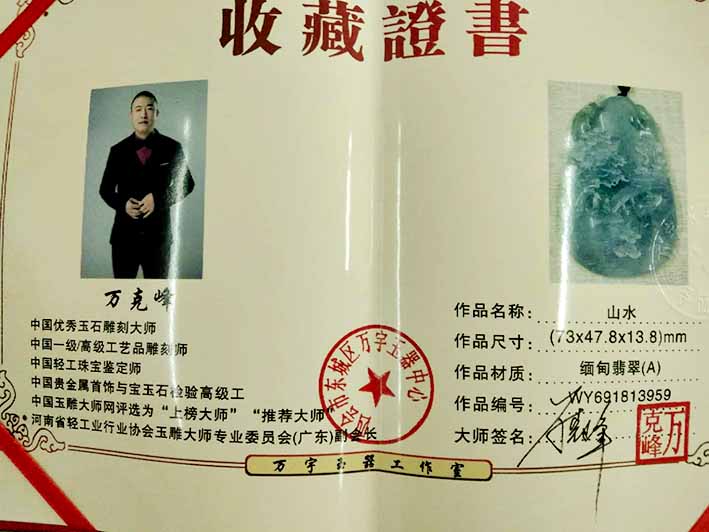 收藏證書
万克峰
中国优秀玉石雕刻大师
中国一级/高级工艺品雕刻师
中国轻工珠宝鉴定师
中国贵金属首饰与宝玉石检验高级工
中国玉雕大师网评选为“上榜大师” “推荐大师”
河南省轻工业行业协会玉雕大师专业委员会(广东)副会长
四会市东城区万宇玉器中心
作品名称: 山水
作品尺寸: (73x47.8x13.8)mm
作品材质: 缅甸翡翠(A)
作品编号: WY691813959
大师签名:
万克峰
万宇玉器工作室